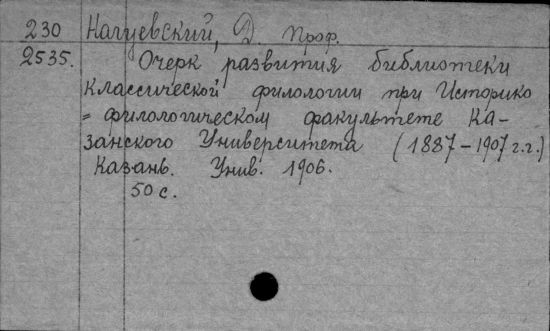 230 Нагуевский, Д. Проф.
2535. Очерк развития библиотеки
классической филологии при Историко
= филологическом факультете Ка-
занского Университета (1887-1907 г.г.)
Казань. Унив. 1906.
50 с.